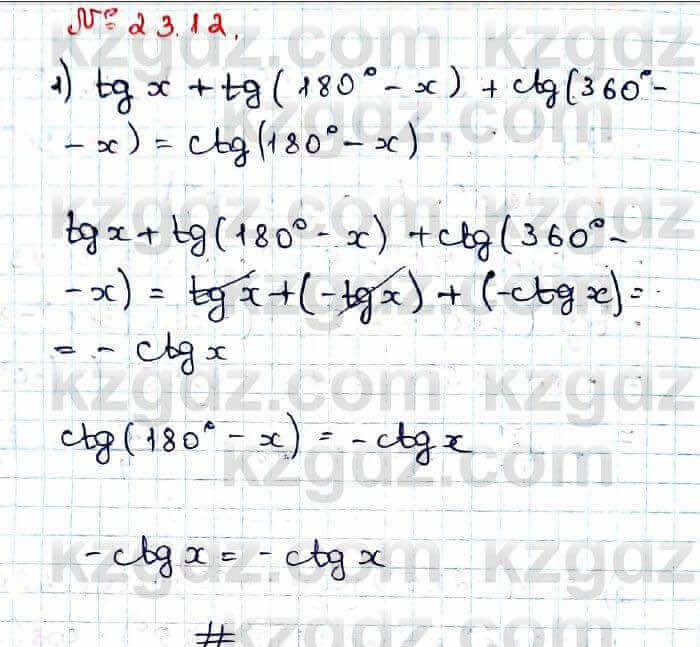 № 23.12.
1) tg x + tg(180° - x) + ctg(360° -
- x) = ctg(180° - x)
tg x + tg(180° - x) + ctg(360° -
- x) = tg x + (-tg x) + (-ctg x) =
= - ctg x
ctg(180° - x) = - ctg x
- ctg x = - ctg x
#
kzgdz.com